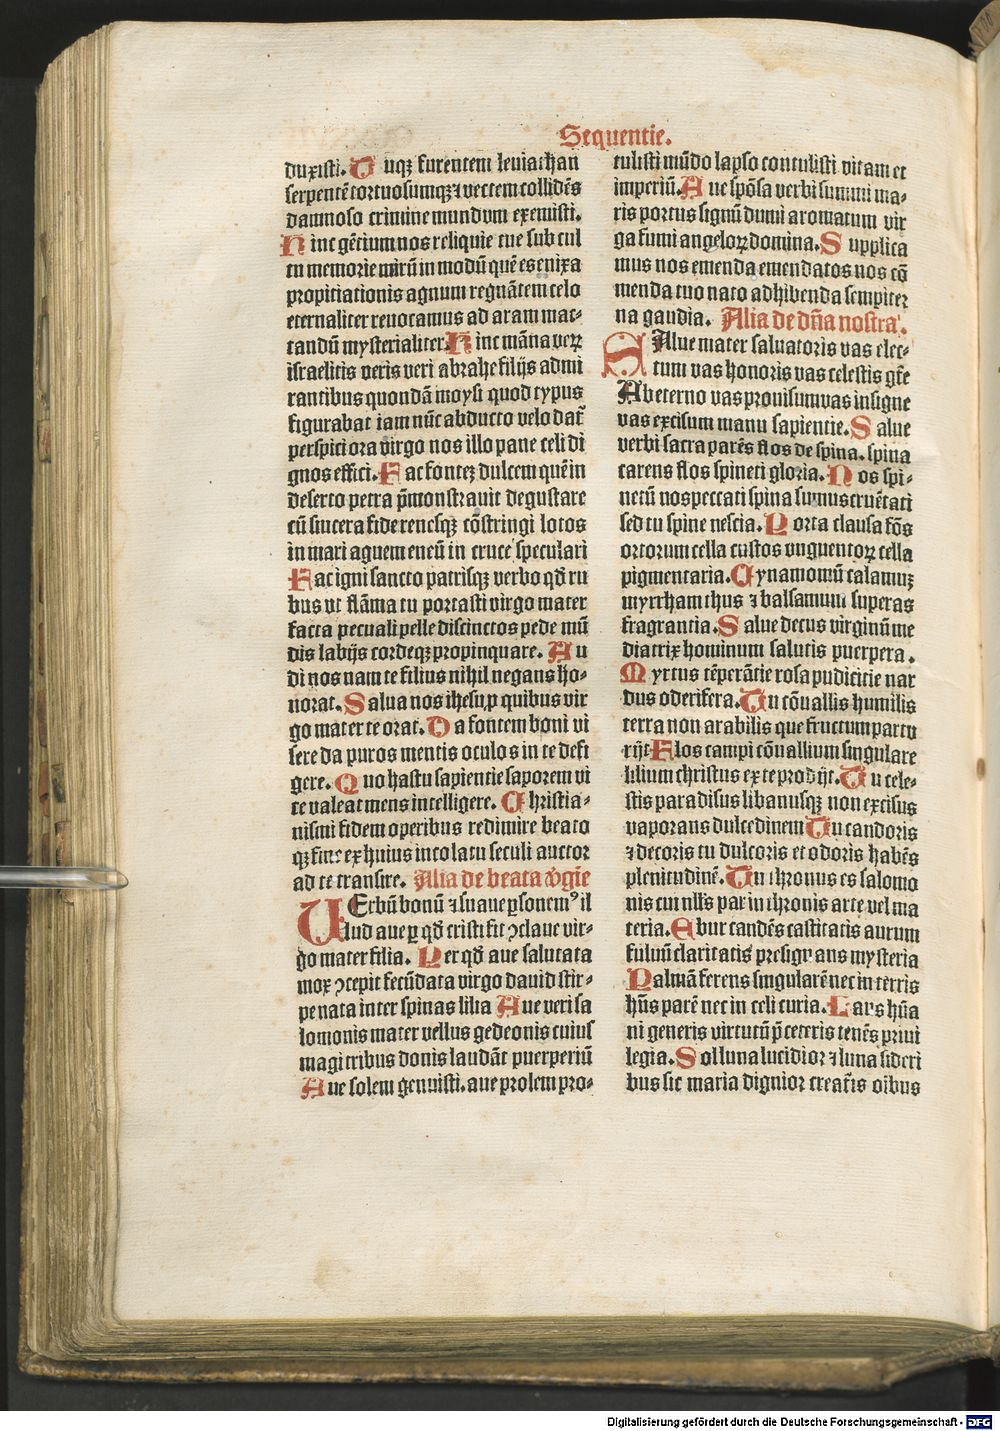 Sequentie.
duxisti. Tuqꝫ furentem leuiathan
serpentē tortuosumqꝫ ⁊ vectem collidēs
damnoso crimine mundum exemisti.
Hinc gētium nos reliquie tue sub cul
tu memorie mirū in modū quē es enixa
propitiationis agnum regnātem celo
eternaliter reuocamus ad aram mac⸗
tandū mysterialiter. Hinc māna verꝝ
israelitis veris veri abrahe filijs admi
rantibus quondā moysi quod typus
figurabat iam nūc abducto velo dat̄
perspici ora virgo nos illo pane celi di
gnos effici. Fac fontēꝫ dulcem quē in
deserto petra p̄monstrauit degustare
cū sincera fide renesqꝫ cōstringi lotos
in mari aguem eneū in cruce speculari
Fac igni sancto patrisqꝫ verbo qd̄ ru
bus vt flāma tu portasti virgo mater
facta pecuali pelle discinctos pede mū
dis labijs cordeqꝫ propinquare. Au
di nos nam te filius nihil negans ho⸗
norat. Salua nos ihesu, ꝓ quibus vir
go mater te orat. Da fontem boni vi
sere da puros mentis oculos in te defi
gere. Quo haustu sapientie saporem vi
te valeat mens intelligere. Christia⸗
nismi fidem operibus redimire beato
qꝫ fine ex huius incolatu seculi auctor
ad te transire. Alia de beata v̄gīe
VErbū bonū ⁊ suaue ꝑsonemꝰ il
lud aue ꝑ qd̄ cristi fit ꝯclaue vir⸗
go mater filia. Per qd̄ aue salutata
mox ꝯcepit fecūdata virgo dauid stir⸗
pe nata inter spinas lilia Aue veri sa
lomonis mater vellus gedeonis cuius
magi tribus donis laudāt puerperiū
Aue solem genuisti. aue prolem pro⸗
tulisti mūdo lapso contulisti vitam et
imperiū. Aue spōsa verbi summi ma⸗
ris portus signū dumi aromatum vir
ga fumi angeloꝝ domina. Supplica
mus nos emenda emendatos nos cō
menda tuo nato ad hibenda sempiter
na gaudia. Alia de dn̄a nostra.
SAlue mater saluatoris vas elec⸗
tum vas honoris vas celestis gr̄e
Ab eterno vas prouisum vas insigne
vas excisum manu sapientie. Salue
verbi sacra parēs flos de spina. spina
carens flos spineti gloria. Nos spi⸗
netū nos peccati spina sumus cruētati
sed tu spine nescia. Porta clausa fōs
ortorum cella custos vnguentoꝝ cella
pigmentaria. Cynamomū calamuꝫ
myrrham thus ⁊ balsamum superas
fragrantia. Salue decus virginū me
diatrix hominum salutis puerpera.
Myrtus tēperātie rosa pudicitie nar
dus oderifera. Tu cōuallis humilis
terra non arabilis que fructum partu
rijt Flos campi cōuallium singulare
lilium christus ex te prodijt. Tu cele⸗
stis paradisus libanusqꝫ non excisus
vaporans dulcedinem Tu candoris
⁊ decoris tu dulcoris et odoris habēs
plenitudinē. Tu thronus es salomo
nis cui nll's par in thronis arte vel ma
teria. Ebur candēs castitatis aurum
fuluū claritatis presignans mysteria
Palmā ferens singularē nec in terris
hūs parē nec in celi curia. Laus hūa
ni generis virtutū p̄ ceteris tenēs priui
legia. Sol luna lucidior ⁊ luna sideri
bus sic maria dignior creat̄is oībus
Digitalisierung gefördert durch die Deutsche Forschungsgemeinschaft - DFG